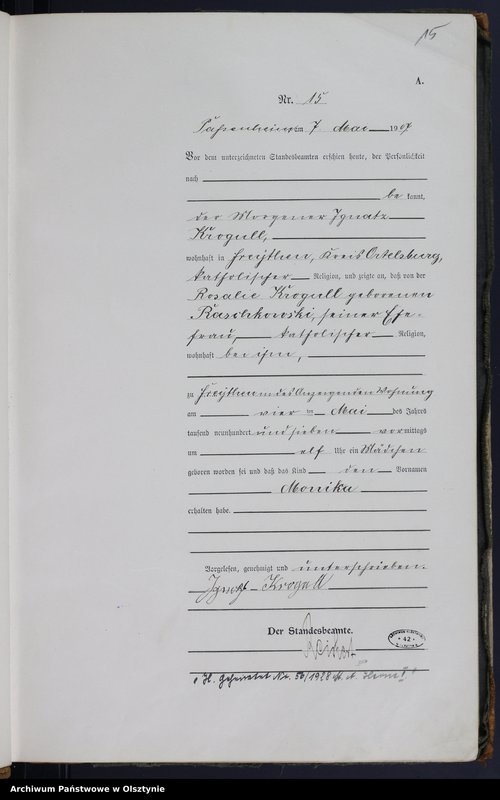 15
A.
Nr. 15.
Passenheim am 7 Mai 1907
Vor dem unterzeichneten Standesbeamten erschien heute, der Persönlichkeit
nach
be kannt,
der Ignatz
Krogull,
wohnhaft in Kreis Ortelsburg,
katholischer Religion, und zeigte an, daß von der
Rosalie Krogull geborenen
seiner Ehe-
frau, katholischer Religion,
wohnhaft bei ihm,
zu in des Anzeigenden Wohnung
am vier ten Mai des Jahres
tausend neunhundert und sieben vormittags
um elf Uhr ein Mädchen
geboren worden sei und daß das Kind den Vornamen
Monika
erhalten habe.
Vorgelesen, genehmigt und unterschrieben.
Ignatz Krogull
Der Standesbeamte.
42
Geheiratet Nr. 56/1928
Archiwum Państwowe w Olsztynie